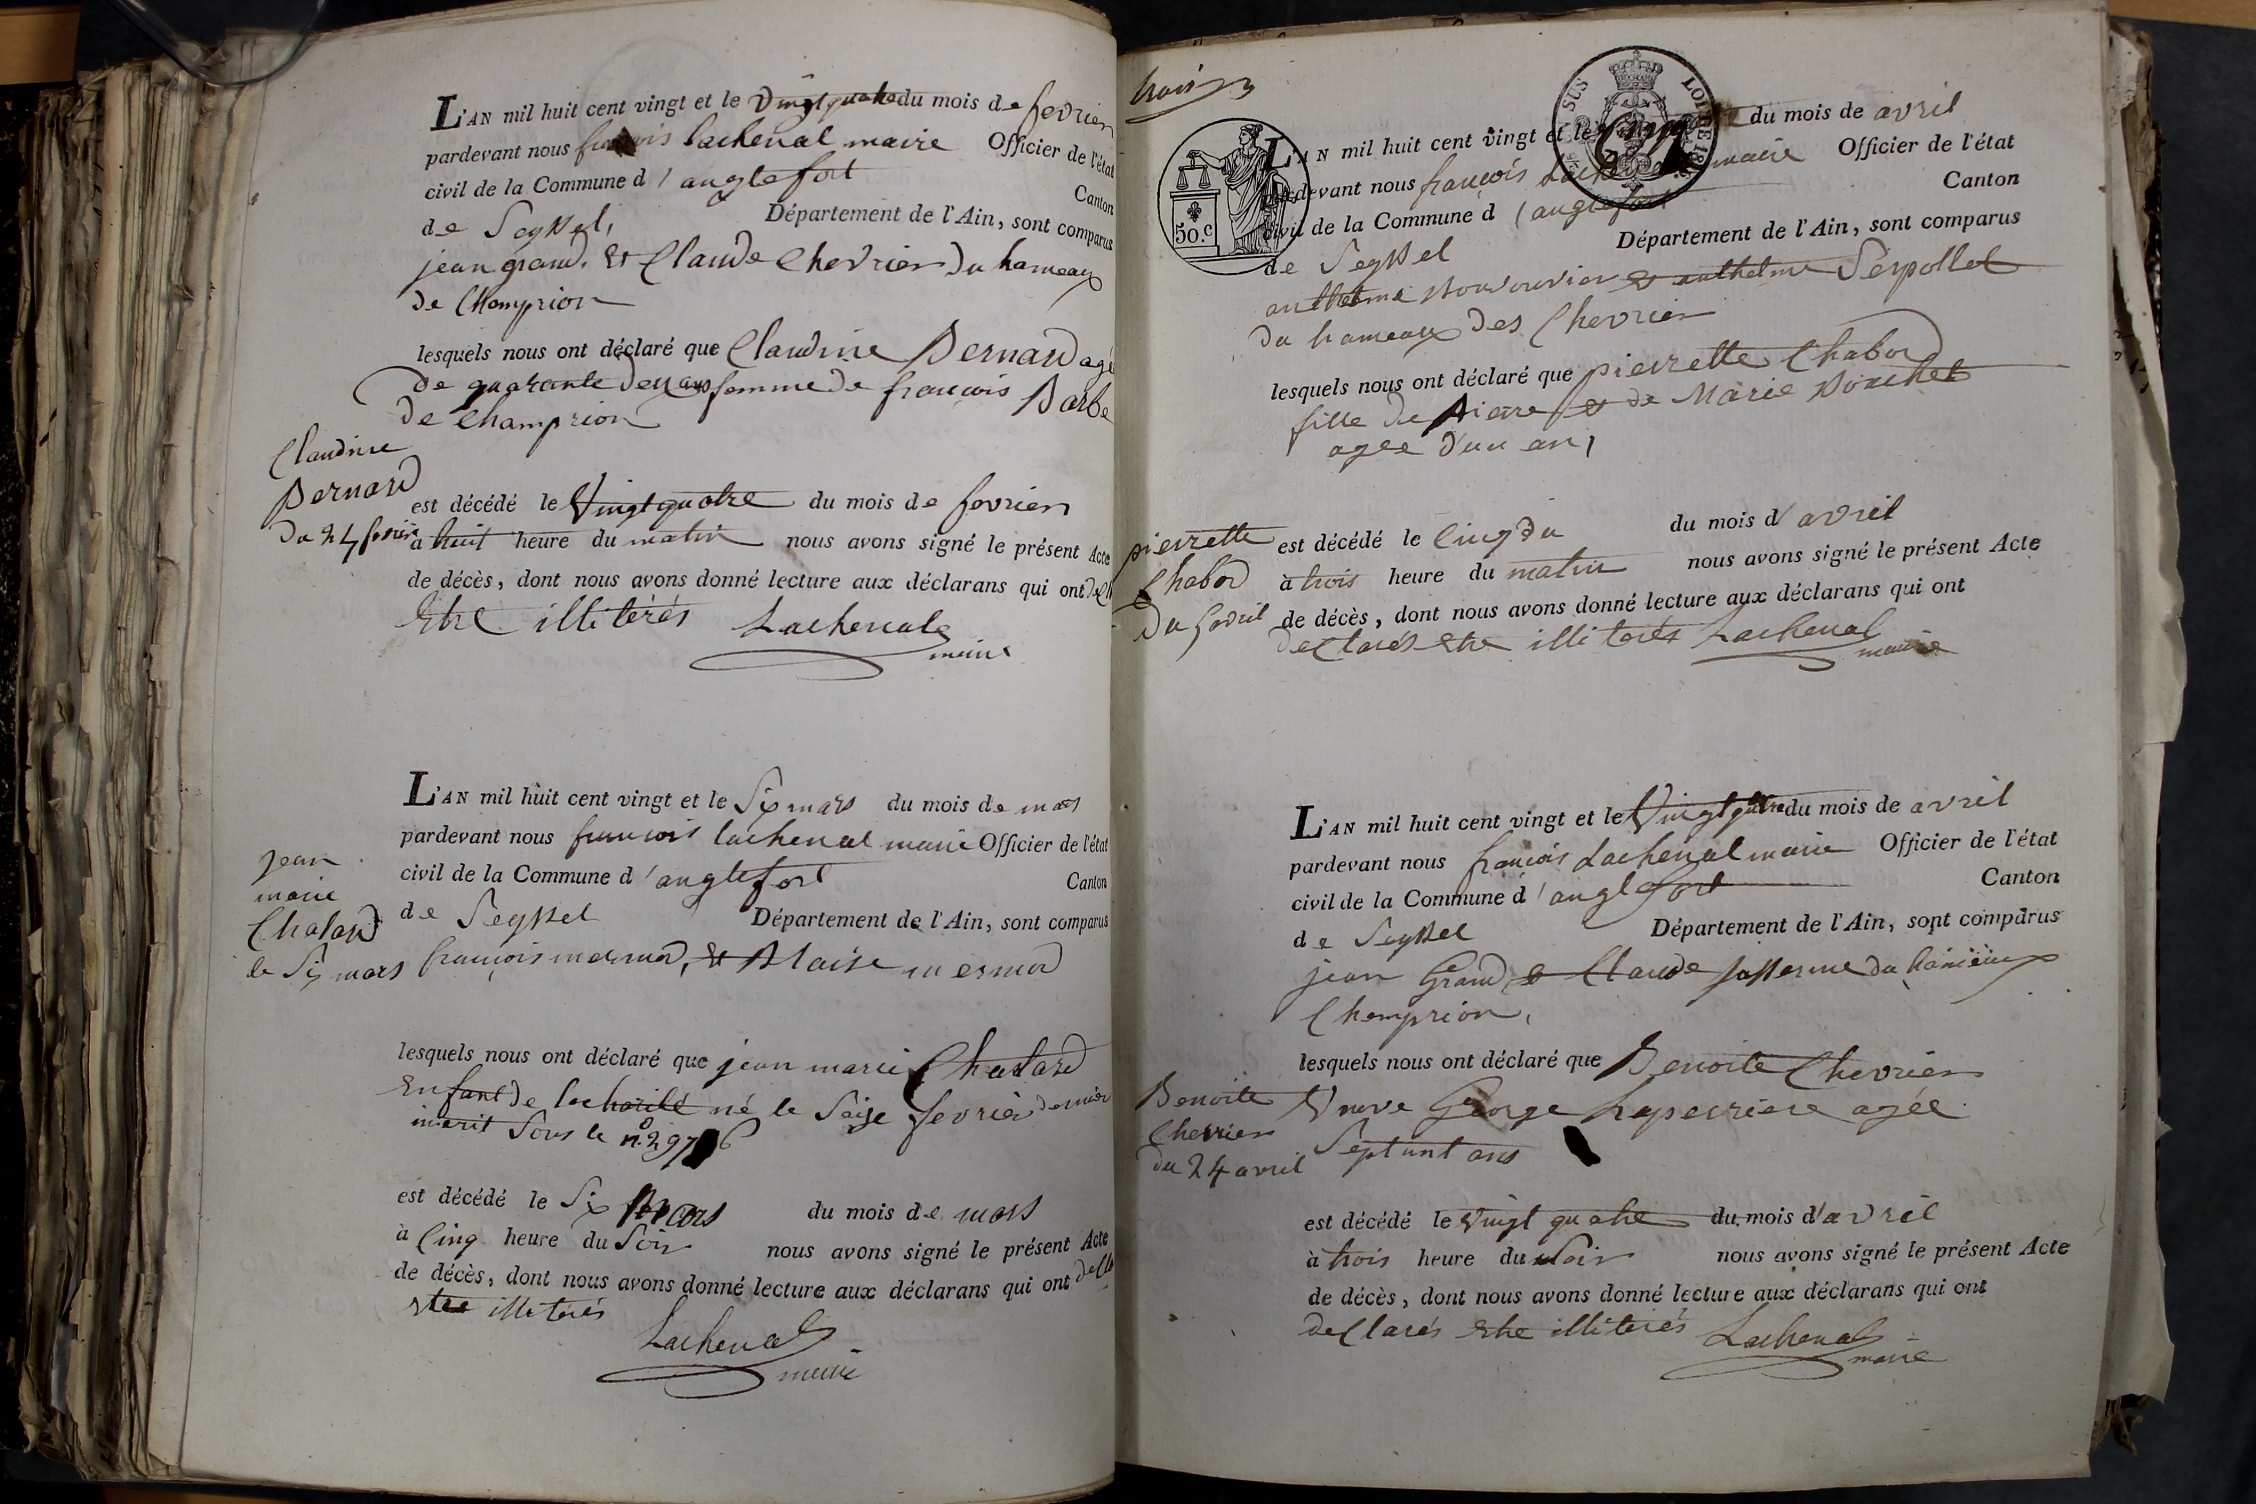 L'AN mil huit cent vingt et le vingt quatre du mois de fevrier
pardevant nous françois Lachenal maire Officier de l'état
civil de la Commune d'anglefort Canton
de Seyssel, Département de l'Ain, sont comparus
jean grand, et Claude Chevrier du hameaux
de Champrion
lesquels nous ont déclaré que Claudine Bernard agé
de quarante deux ans femme de françois Barbe
de Champrion
Claudine
Bernard
du 24 fevrier
est décédé le Vingt quatre du mois de fevrier
à huit heure du matin nous avons signé le présent Acte
de décès, dont nous avons donné lecture aux déclarans qui ont
Etre illiterés Lachenal
maire
L'AN mil huit cent vingt et le Six mars du mois de mars
pardevant nous francois Lachenal maire Officier de l'état
civil de la Commune d'anglefort Canton
de Seyssel Département de l'Ain, sont comparus
jean
marie
Chatard
le Six mars
françois mermod, et Blaise mermod
lesquels nous ont déclaré que jean marie Chatard
Enfant de la charité né le Seize fevrier dernier
inscrit Sous le n.o
est décédé le Six Mars du mois de mars
à Cinq heure du Soir nous avons signé le présent Acte
de décès, dont nous avons donné lecture aux déclarans qui ont
etre illiterés
Lachenal
maire
trois
SUS LOI DE 18
50.c
L'AN mil huit cent vingt et le du mois de avril
pardevant nous françois Lachenal maire Officier de l'état
civil de la Commune d'anglefort Canton
de Seyssel Département de l'Ain, sont comparus
anthelme et anthelme Serpollet
du hameaux des Chevrier
lesquels nous ont déclaré que pierrette Chabod
fille de Pierre et de Marie
agée d'un an,
pierrette
Chabod
du 5 avril
est décédé le Cinq du du mois d'avril
à trois heure du matin nous avons signé le présent Acte
de décès, dont nous avons donné lecture aux déclarans qui ont
declarés etre illiterés Lachenal
maire
L'AN mil huit cent vingt et le Vingt quatre du mois de avril
pardevant nous françois Lachenal maire Officier de l'état
civil de la Commune d'anglefort Canton
de Seyssel Département de l'Ain, sont comparus
jean Grand et Claude du hameaux
Champrion,
lesquels nous ont déclaré que Benoite Chevrier
Veuve George Laperriere agée
Septant ans
Benoite
Chevrier
du 24 avril
est décédé le vingt quatre du mois d'avril
à trois heure du Soir nous avons signé le présent Acte
de décès, dont nous avons donné lecture aux déclarans qui ont
declarés etre illiterés Lachenal
maire